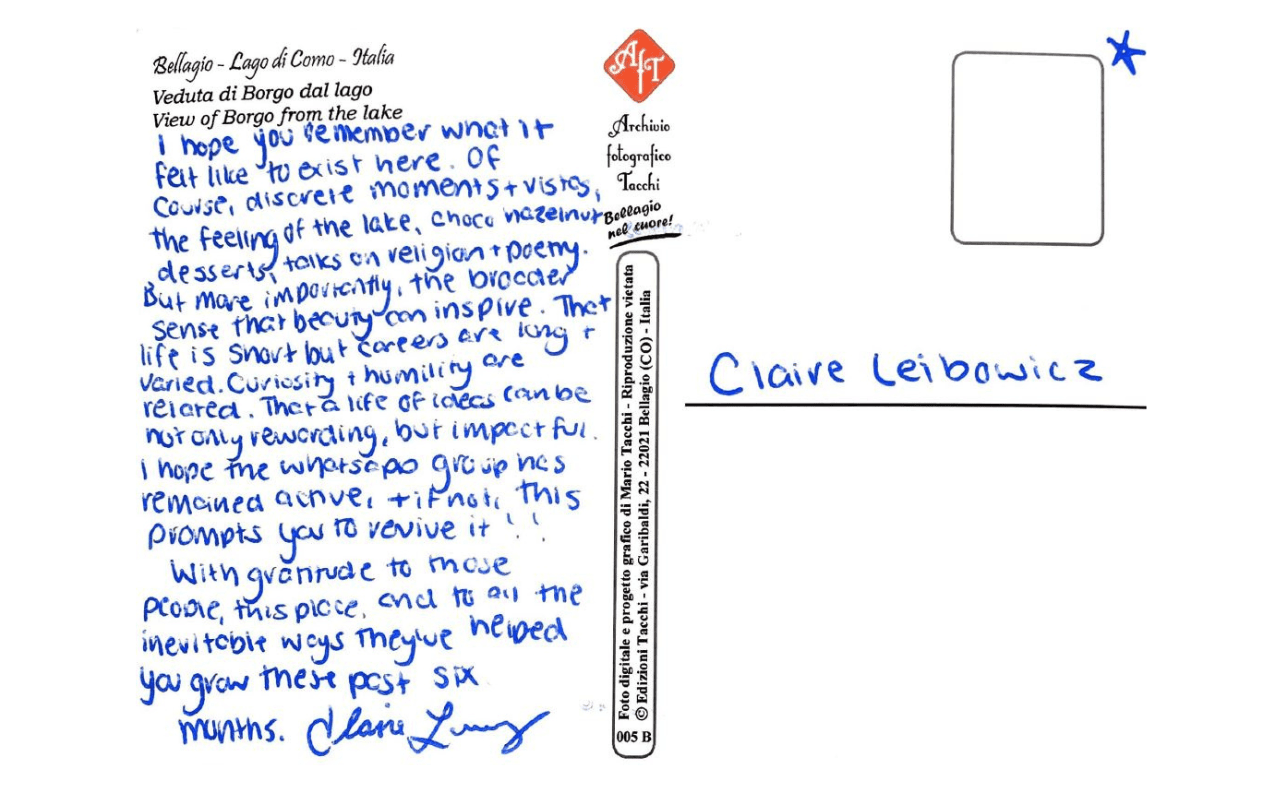 Bellagio - Lago di Como - Italia
Veduta di Borgo dal lago
View of Borgo from the lake
I hope you remember what it
felt like to exist here. Of
course, discrete moments + vistas,
the feeling of the lake, choco hazelnut
desserts, talks on religion + poetry.
But more importantly, the broader
sense that beauty can inspire. That
life is short but careers are long +
varied. Curiosity + humility are
related. That a life of ideas can be
not only rewarding, but impactful.
I hope the whatsapp group has
remained active, + if not, this
prompts you to revive it!!
With gratitude to those
people, this place, and to all the
inevitable ways they've helped
you grow these past six
months. Claire
AfT
Archivio
fotografico
Tacchi
Bellagio
nel cuore!
Foto digitale e progetto grafico di Mario Tacchi - Riproduzione vietata
© Edizioni Tacchi - via Garibaldi, 22 - 22021 Bellagio (CO) - Italia
005 B
Claire Leibowicz